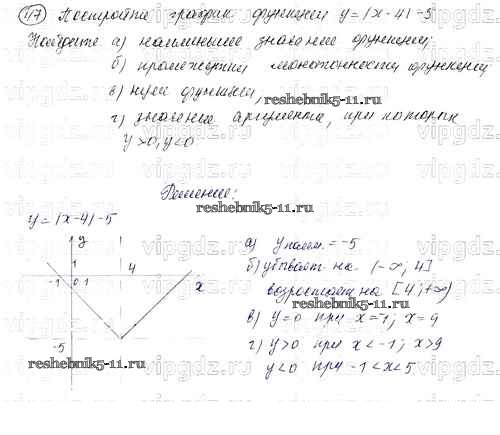 417 Постройте график функции y=|x-4|-5
Найдите а) наименьшее значение функции;
б) промежутки монотонности функции
в) нули функции,
reshebnik5-11.ru
г) значение аргумента, при котором
y>0, y<0
Решение:
reshebnik5-11.ru
y=|x-4|-5
y
1
-1 0 1 4 x
-5
а) y наим.=-5
б) убывает на (-∞; 4]
возрастает на [4;+∞)
в) y=0 при x=-1; x=9
г) y>0 при x<-1; x>9
y<0 при -1<x<5
reshebnik5-11.ru